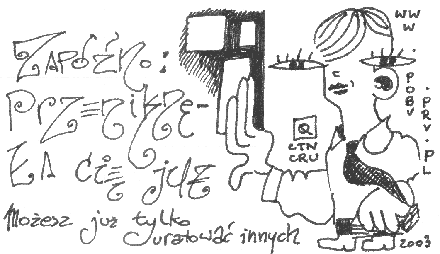 Zapóźno:
Przeniknę-
ła cię już
Możesz już tylko
uratować innych
CTN
CRU
WWW.
POBU
.PRV.PL
2003